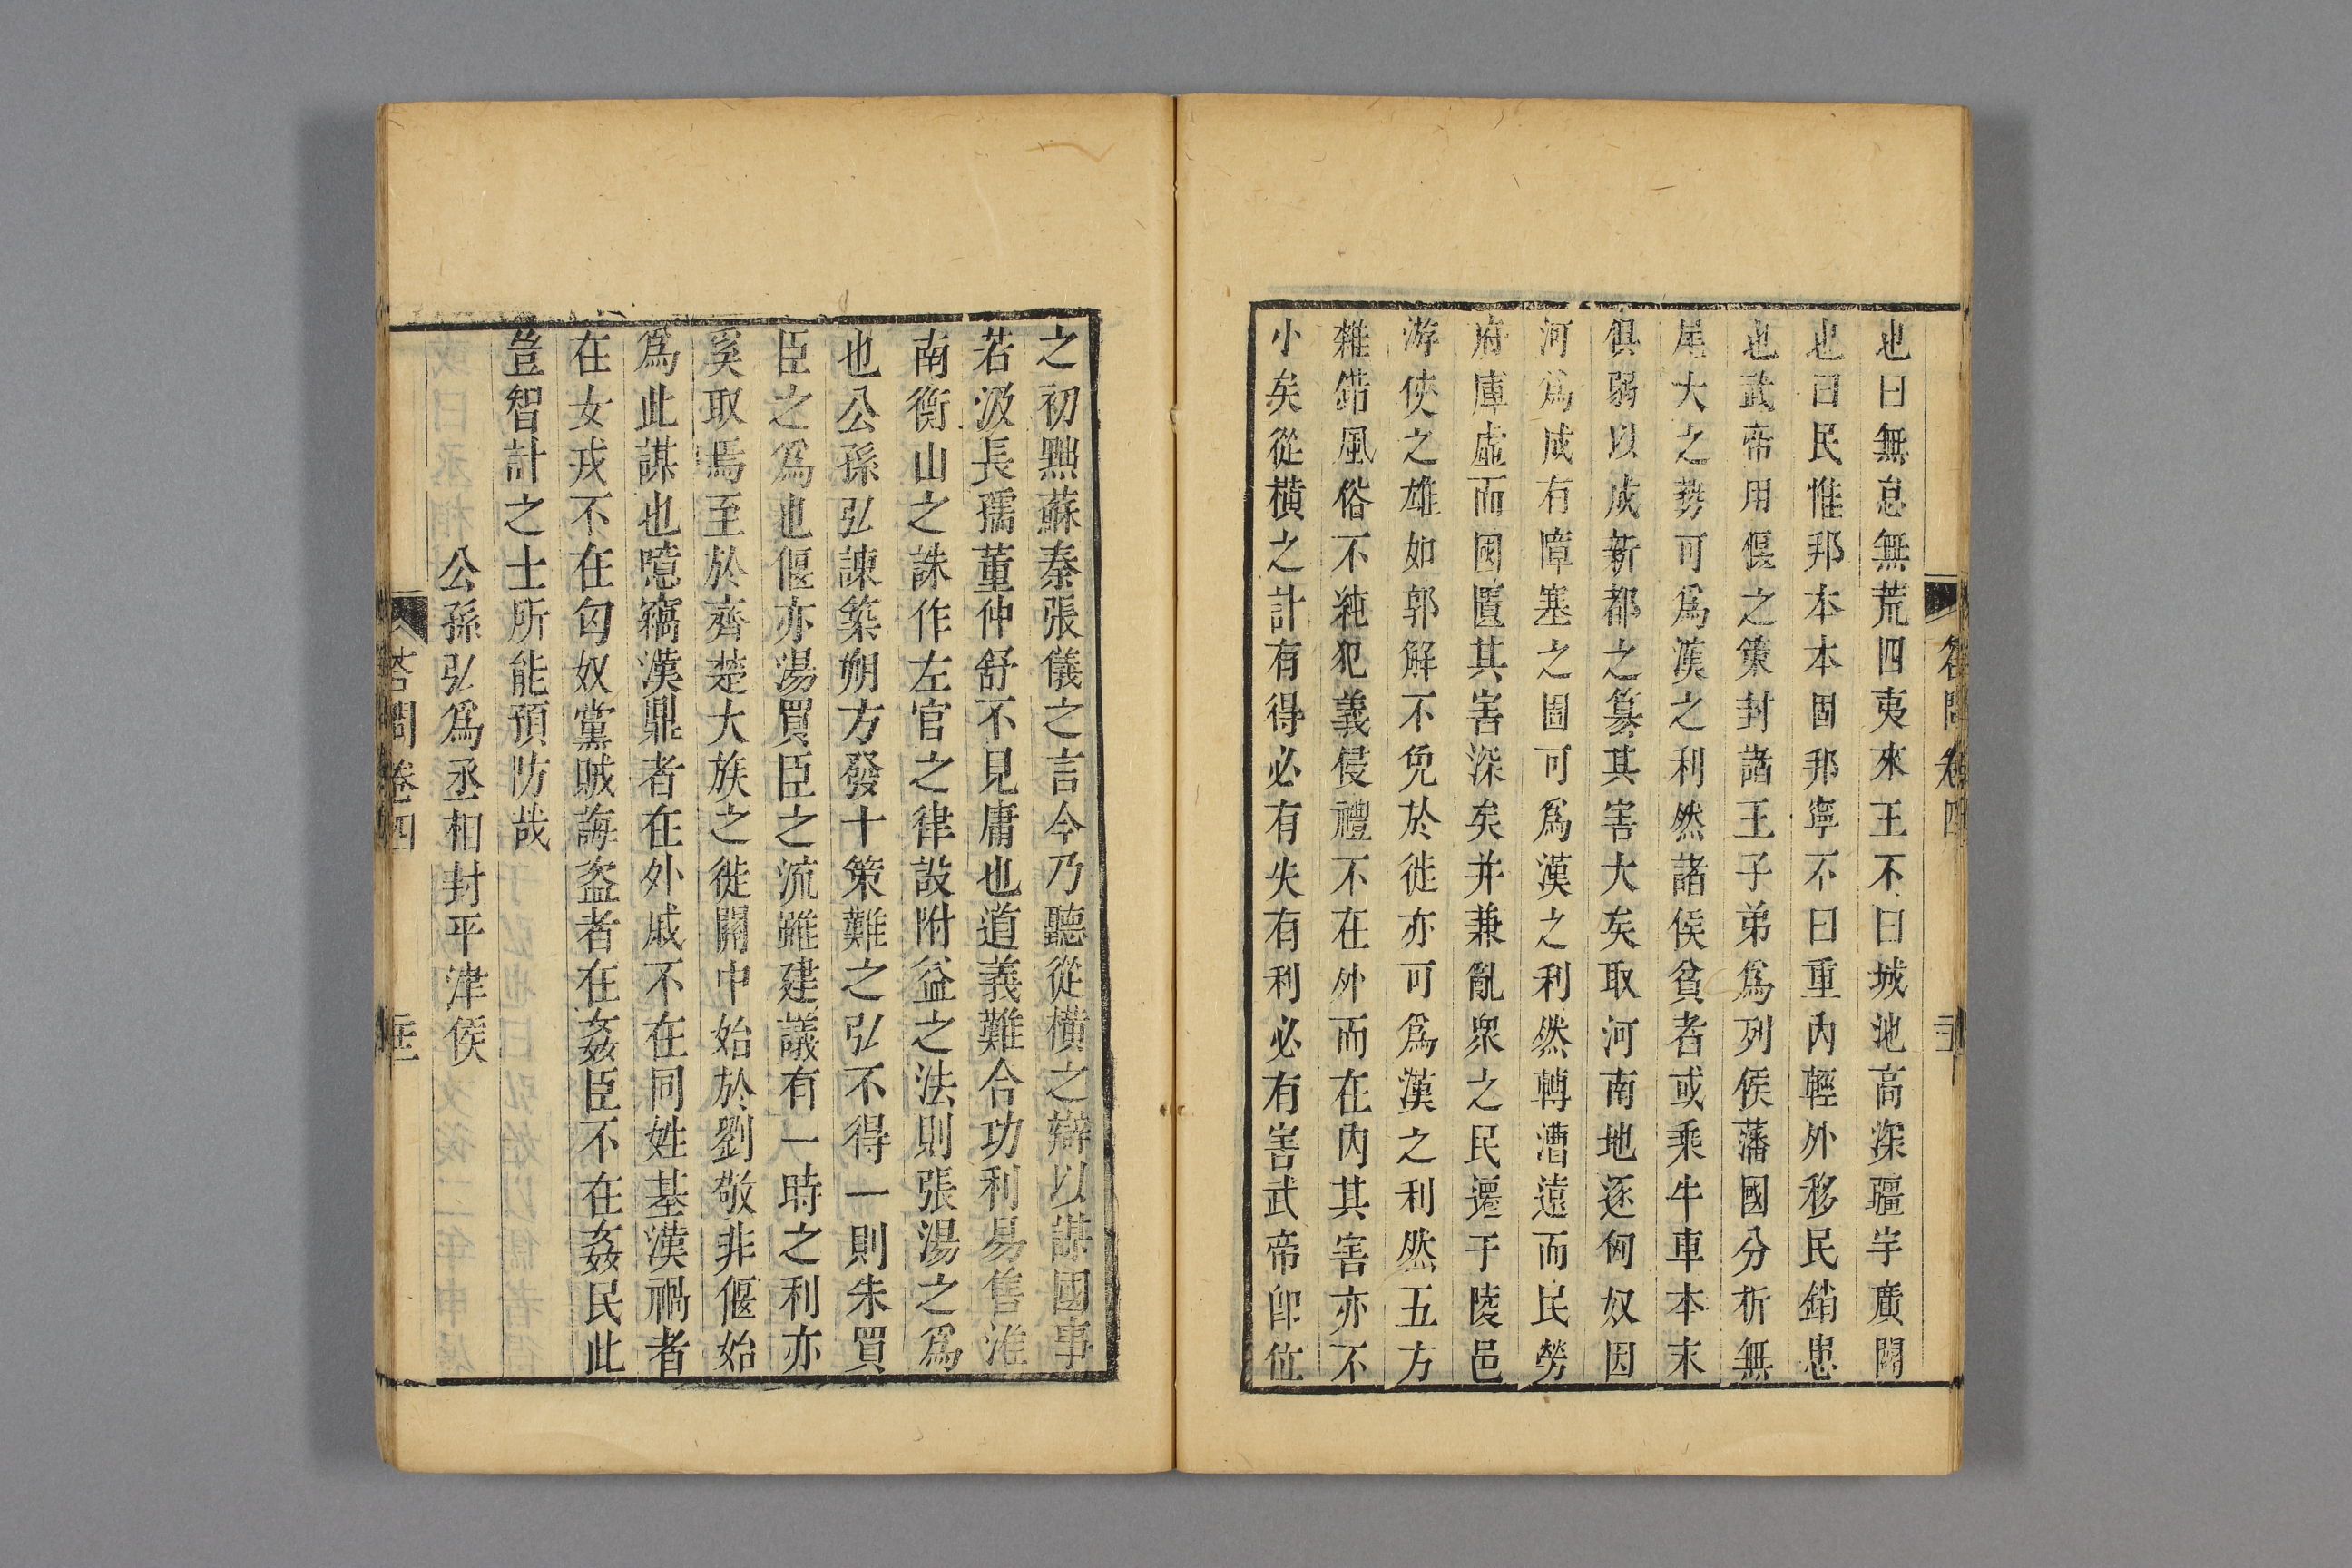 也曰無怠無荒四夷來王不曰城池高深疆宇廣闊
也曰民惟邦本本固邦寧不曰重內輕外移民銷患
也武帝用偃之策封諸王子弟爲列侯藩國分析無
尾大之勢可爲漢之利然諸侯貧者或乘牛車本末
俱弱以成新都之篡其害大矣取河南地逐匈奴因
河爲戍右障塞之固可爲漢之利然轉漕遠而民勞
府庫虛而國匱其害深矣并兼亂衆之民遷于陵邑
游俠之雄如郭解不免於徙亦可爲漢之利然五方
雜錯風俗不純犯義侵禮不在外而在內其害亦不
小矣從橫之計有得必有失有利必有害武帝卽位
之初黜蘇秦張儀之言今乃聽從橫之辯以謀國事
若汲長孺董仲舒不見庸也道義難合功利易售淮
南衡山之誅作左官之律設附益之法則張湯之爲
也公孫弘諫築朔方發十策難之弘不得一則朱買
臣之爲也偃亦湯買臣之流雖建議有一時之利亦
奚取焉至於齊楚大族之徙關中始於劉敬非偃始
爲此謀也噫竊漢鼎者在外戚不在同姓基漢禍者
在女戎不在匈奴黨賊誨盜者在姦臣不在姦民此
豈智計之士所能預防哉
公孫弘爲丞相封平津侯
答問卷四